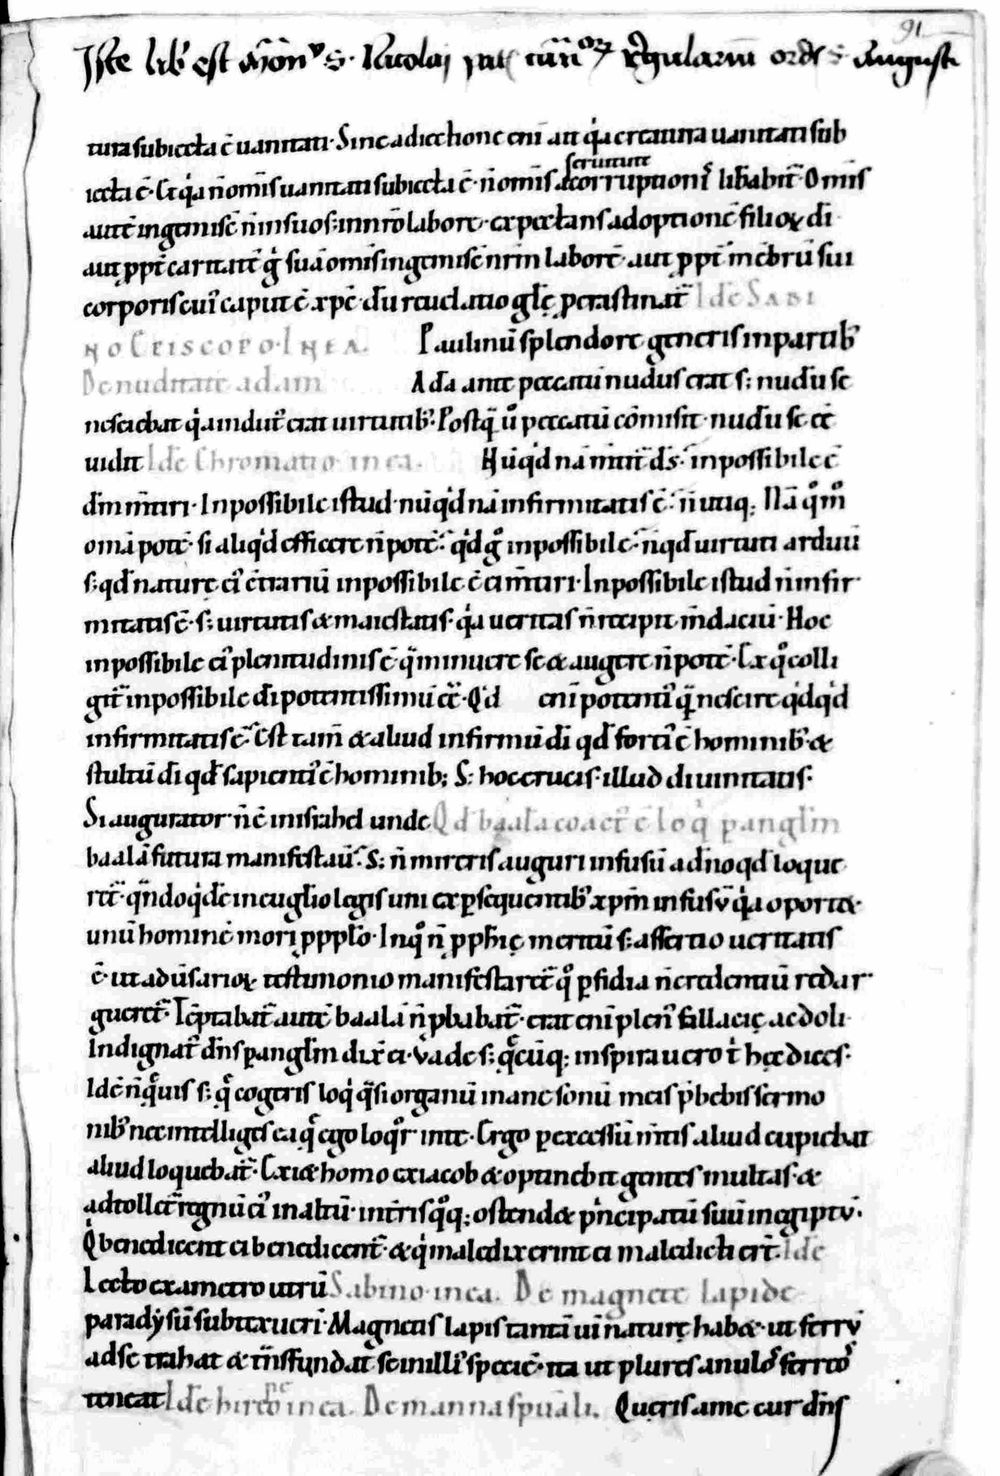 91
Iste lib̄ est mōn s. Nicolaj regulariū ord s Augusti
tura subiecta ē uanitati · Sine adiectione enī ait q̇a creatura uanitati sub
seruitute
iecta ē · Et q̇a n̄ omīs uanitati subiecta ē · n̄ omīs a corruptioni libabit̄ · Omīs
autē ingemiscē n̄ in suos : in nr̄o labore · expectans adoptionē filioꝝ dī
aut ꝓpt̄ caritatē suā omīs ingemiscē nrīn laborē · aut ꝓpt̄ mēbrū sui
corporis cui caput ē xp̄c · dū reuelatio glę̄ perastinat̄ Idē Sabi
no Episcopo · In ea . Paulinū splendore generis in partib
De nuditate adam Adā ante peccatū nudus erat s; nudū se
nesciebat q̇a indut̄ erat uirtutib · Postq̄ u̇ peccatū cōmisit · nudū se eē
uidit Idē Chromatio · in ea . Nūq̇d nā mētit̄ d̄s · inpossibile ē
dm̄ mētiri · Inpossibile istud · nūq̇d nā infirmitatis ē · n̄ utiq; Nā q̊m̊
omā potē · si aliq̇d efficere n̄ potē · q̇d g̊ inpossibile · n̄ qd̄ uirtuti arduū
s; qd̄ naturę ei ētrariū inpossibile ē ei m̄tiri · Inpossibile istud n̄ infir
mitatis ē · s; uirtutis & maiestatis · q̇a ueritas n̄ recipit mēdaciū · Hoc
inpossibile ei plenitudinis ē q̄ minuere se & augere n̄ potē · Ex q̊ colli
git̄ inpossibile dī potentissimū eē · Q̇d enī potenti q̄ nescire q̇dq̇d
infirmitatis ē · Est tam̄ & aliud infirmū dī qd̄ forti ē hominib &
stultū dī qd̄ sapienti ē hominib; S; hoc crucis · illud diuinitatis ·
Si augurator · n̄ ē in israhel unde Qd̄ baalā coact̄ ē loq̇ p anglm̄
baalā futura manifestau · S; n̄ mireris auguri infusū a dn̄o qd̄ loque
ret̄ · qn̄doq̇dē in euglio legis uni ex psequentib xp̄m infusū q̇a oport&
unū hominē mori ꝓ pplo · In q̊ n̄ ꝓphię meritū s; assertio ueritatis
ē · ut aduersarioꝝ testimonio manifestaret̄ q̊ pfidia n̄ credentiū redar
gueret̄ · Tēptabat̄ autē baalā n̄ pbabat̄ · erat enī plen fallacię ac doli
Indignat̄ dn̄s p anglm̄ dix̄ ei · Vade s; q̄cūq; inspirauero t̄ hęc dices ·
Idē n̄ q̄ uis s; q̄ cogeris loq̇ q̄si organū inane sonū meis p̄bebis sermo
nib nec intelliges ea q̄ ego loqr̄ in te · Ergo p excessū m̄tis aliud cupiebat
aliud loquebat̄ · Exi& homo ex iacob & optinebit gentes multas · &
adtollet̄ regnū ei in altū · in ostend& p̄ncipatū suū in egiptu ·
Q̇ benedicent ei benedicent̄ · & q̇ maledixerint ei maledicti er̄t Idē
Lecto exametro utrū Sabino · in ea . De magnete lapide
paradysū subtexueri · Magnetis lapis tantā uī naturę hab& · ut ferrū
ad se trahat & trn̄sfundat se in illi speciē · ita ut plures anulos ferreos
teneat Idē hireneo in ea . De manna spuāli . Queris a me cur dn̄s